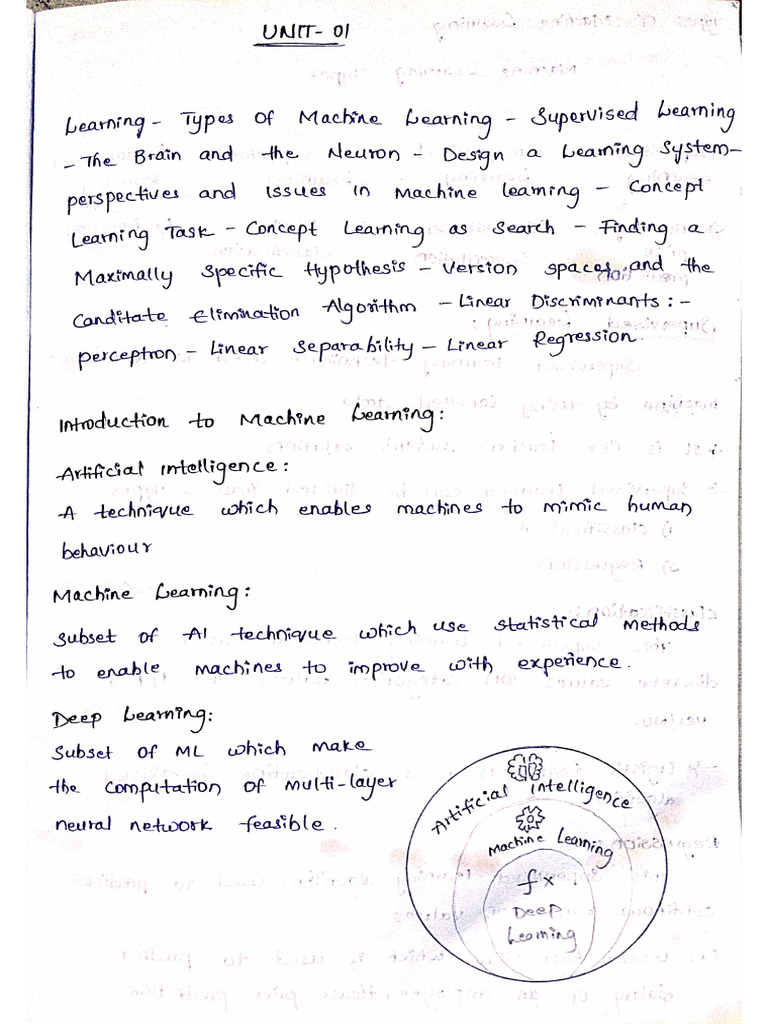 UNIT- 01
Learning - Types of Machine Learning - Supervised Learning
- The Brain and the Neuron - Design a Learning System-
perspectives and issues in Machine learning - Concept
Learning Task - Concept Learning as Search - Finding a
Maximally Specific Hypothesis - Version spaces and the
Canditate Elimination Algorithm - Linear Discriminants : -
perceptron - Linear Separability - Linear Regression.
Introduction to Machine Learning:
Artificial intelligence:
A technique which enables machines to mimic human
behaviour
Machine Learning:
Subset of AI technique which use statistical methods
to enable machines to improve with experience.
Deep Learning:
Subset of ML which make
the computation of multi-layer
neural network feasible.
Artificial Intelligence
Machine Learning
fx
Deep
Learning